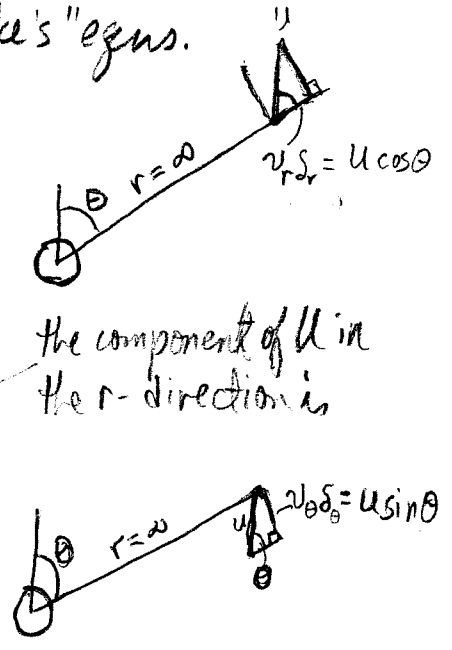 "eqns.
u
θ
r = ∞
v_r δ_r = U cosθ
the component of U in
the r-direction is
θ
r = ∞
u
v_θ δ_θ = U sinθ
θ